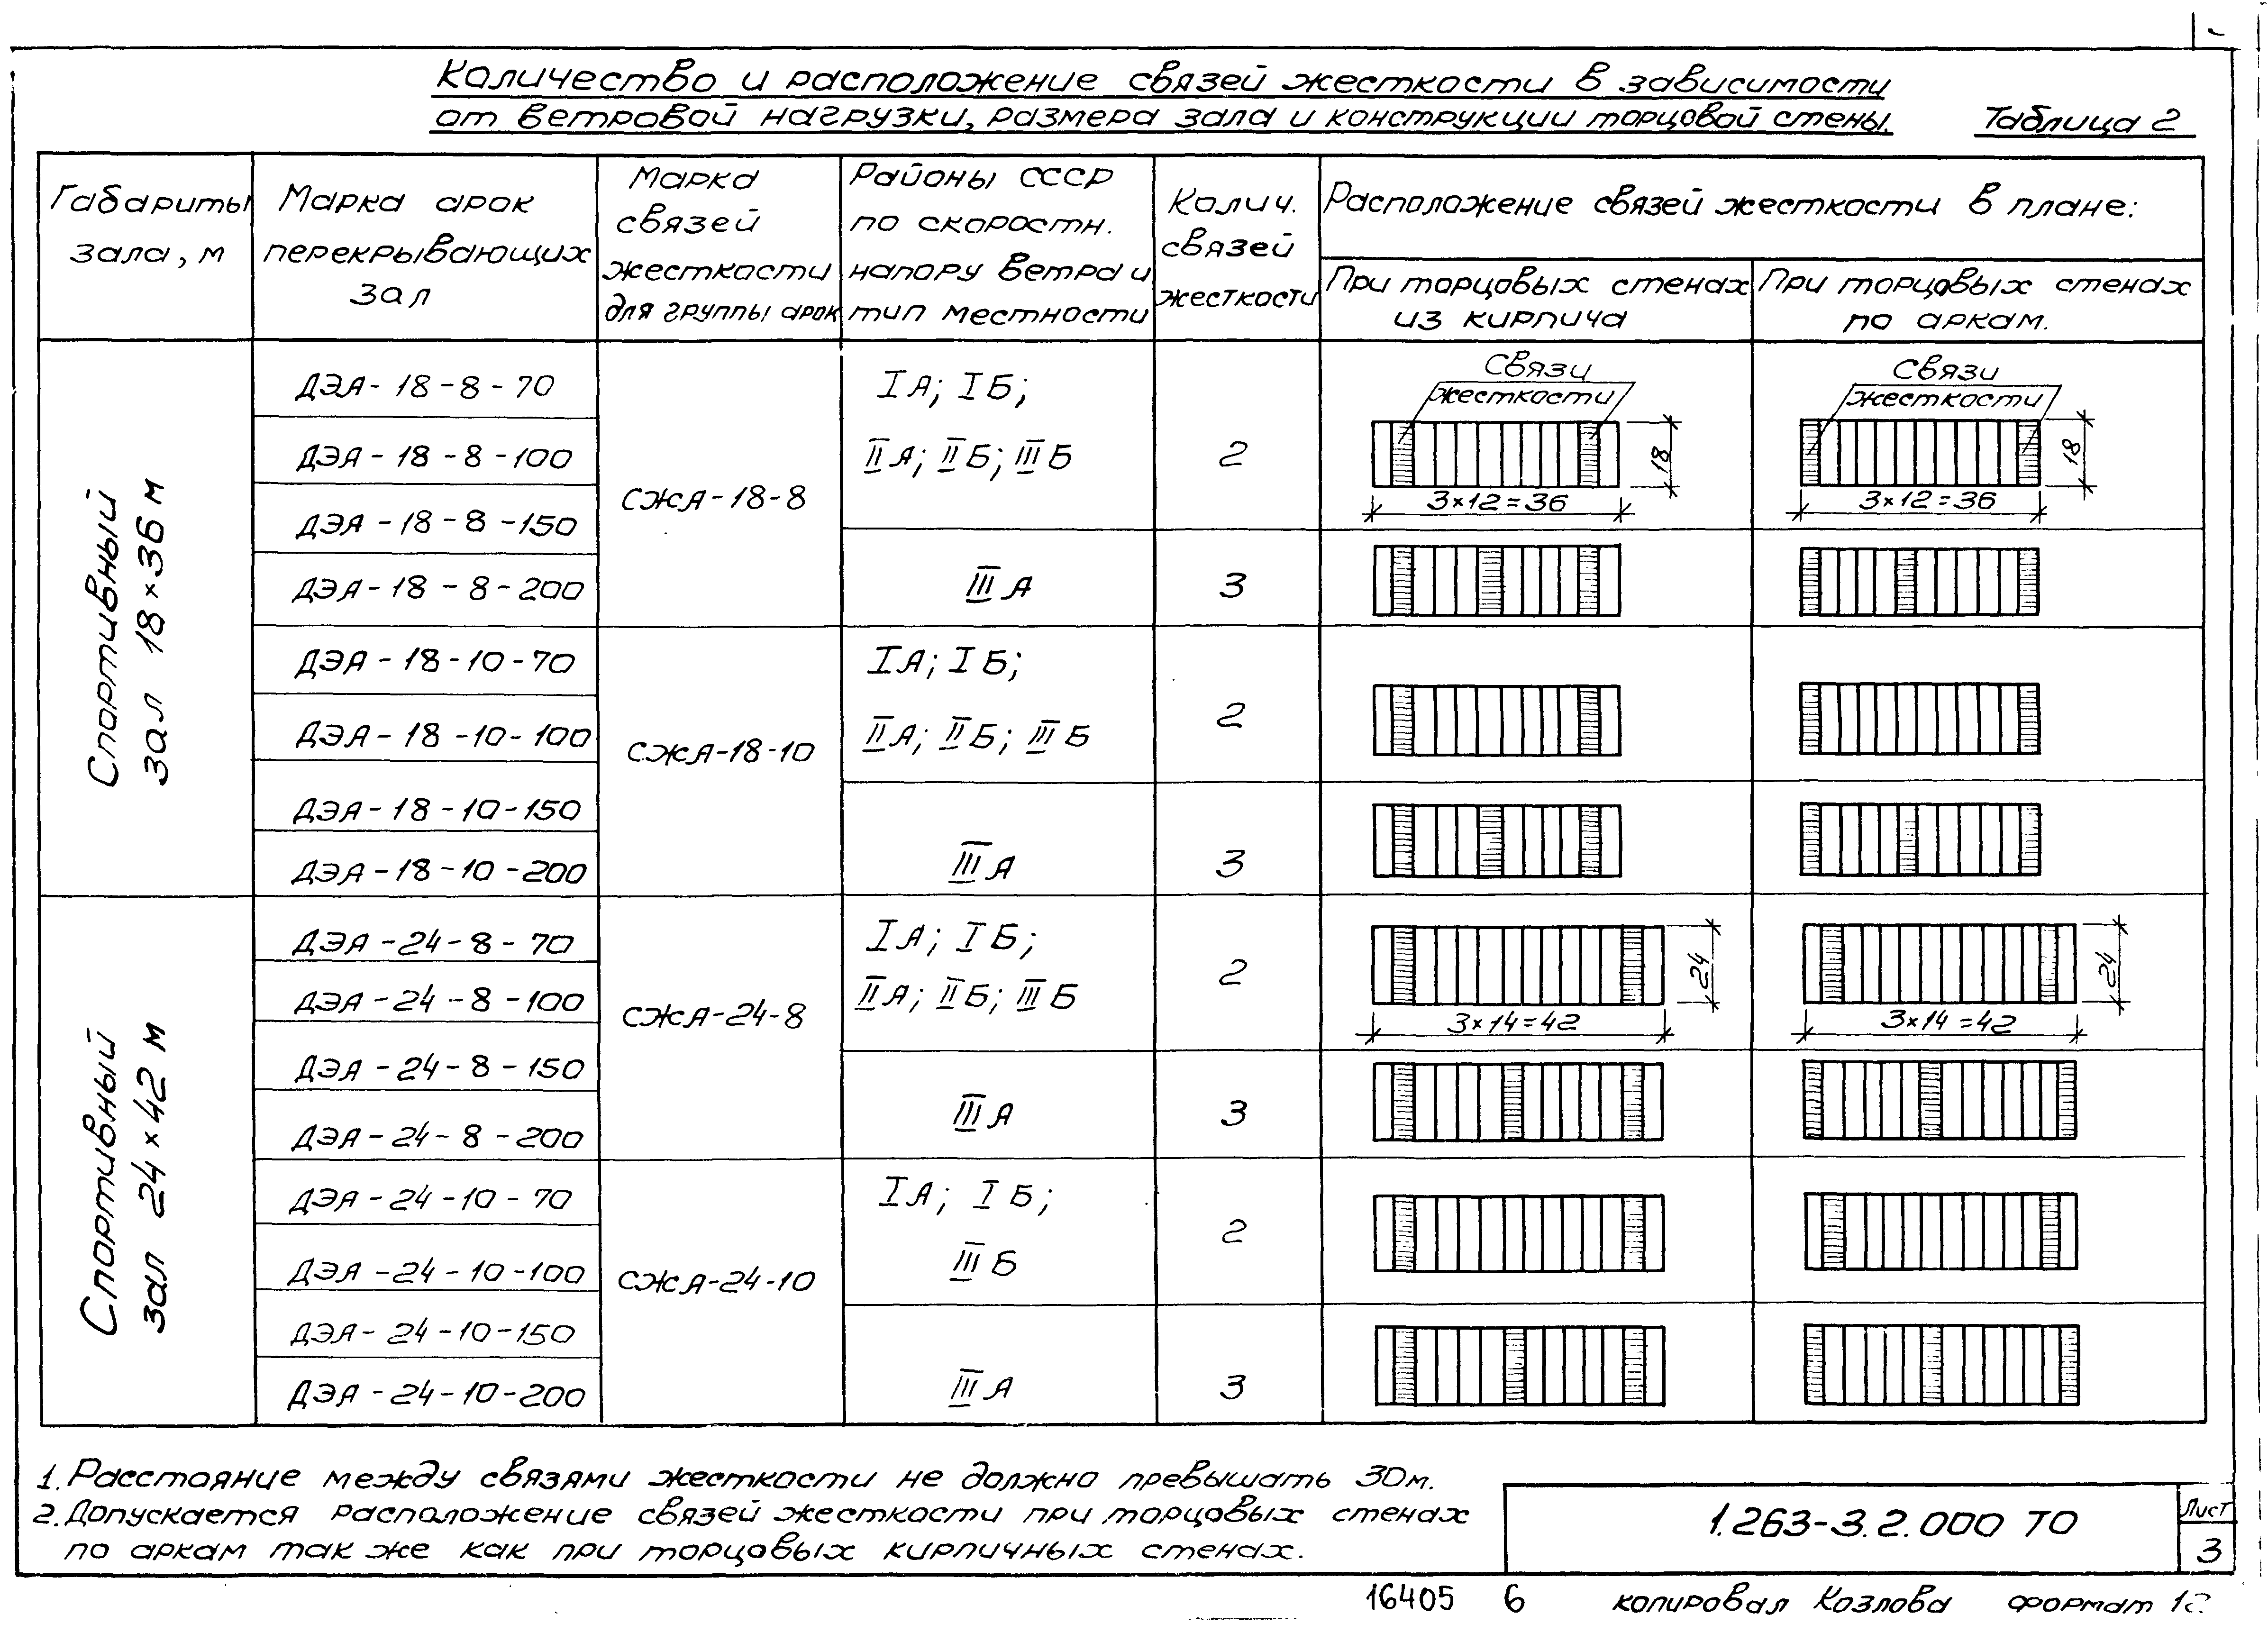 Количество и расположение связей жесткости в зависимости
от ветровой нагрузки, размера зала и конструкции торцовой стены.
Таблица 2
Габариты
зала, м
Марка арок
перекрывающих
зал
Марка
связей
жесткости
для группы арок
Районы СССР
по скоростн.
напору ветра и
тип местности
Колич.
связей
жесткости
Расположение связей жесткости в плане:
При торцовых стенах
из кирпича
При торцовых стенах
по аркам.
Спортивный
зал 18×36 м
ДЭА-18-8-70
ДЭА-18-8-100
ДЭА-18-8-150
ДЭА-18-8-200
СЖА-18-8
IА; IБ;
IIА; IIБ; IIIБ
2
Связи
жесткости
18
3×12=36
Связи
жесткости
18
3×12=36
IIIА
3
ДЭА-18-10-70
ДЭА-18-10-100
ДЭА-18-10-150
ДЭА-18-10-200
СЖА-18-10
IА; IБ;
IIА; IIБ; IIIБ
2
IIIА
3
Спортивный
зал 24×42 м
ДЭА-24-8-70
ДЭА-24-8-100
ДЭА-24-8-150
ДЭА-24-8-200
СЖА-24-8
IА; IБ;
IIА; IIБ; IIIБ
2
24
3×14=42
24
3×14=42
IIIА
3
ДЭА-24-10-70
ДЭА-24-10-100
ДЭА-24-10-150
ДЭА-24-10-200
СЖА-24-10
IА; IБ;
IIIБ
2
IIIА
3
1. Расстояние между связями жесткости не должно превышать 30м.
2. Допускается расположение связей жесткости при торцовых стенах
по аркам так же как при торцовых кирпичных стенах.
1.263-3.2.000 ТО
Лист
3
16405 6 копировал Козлова формат